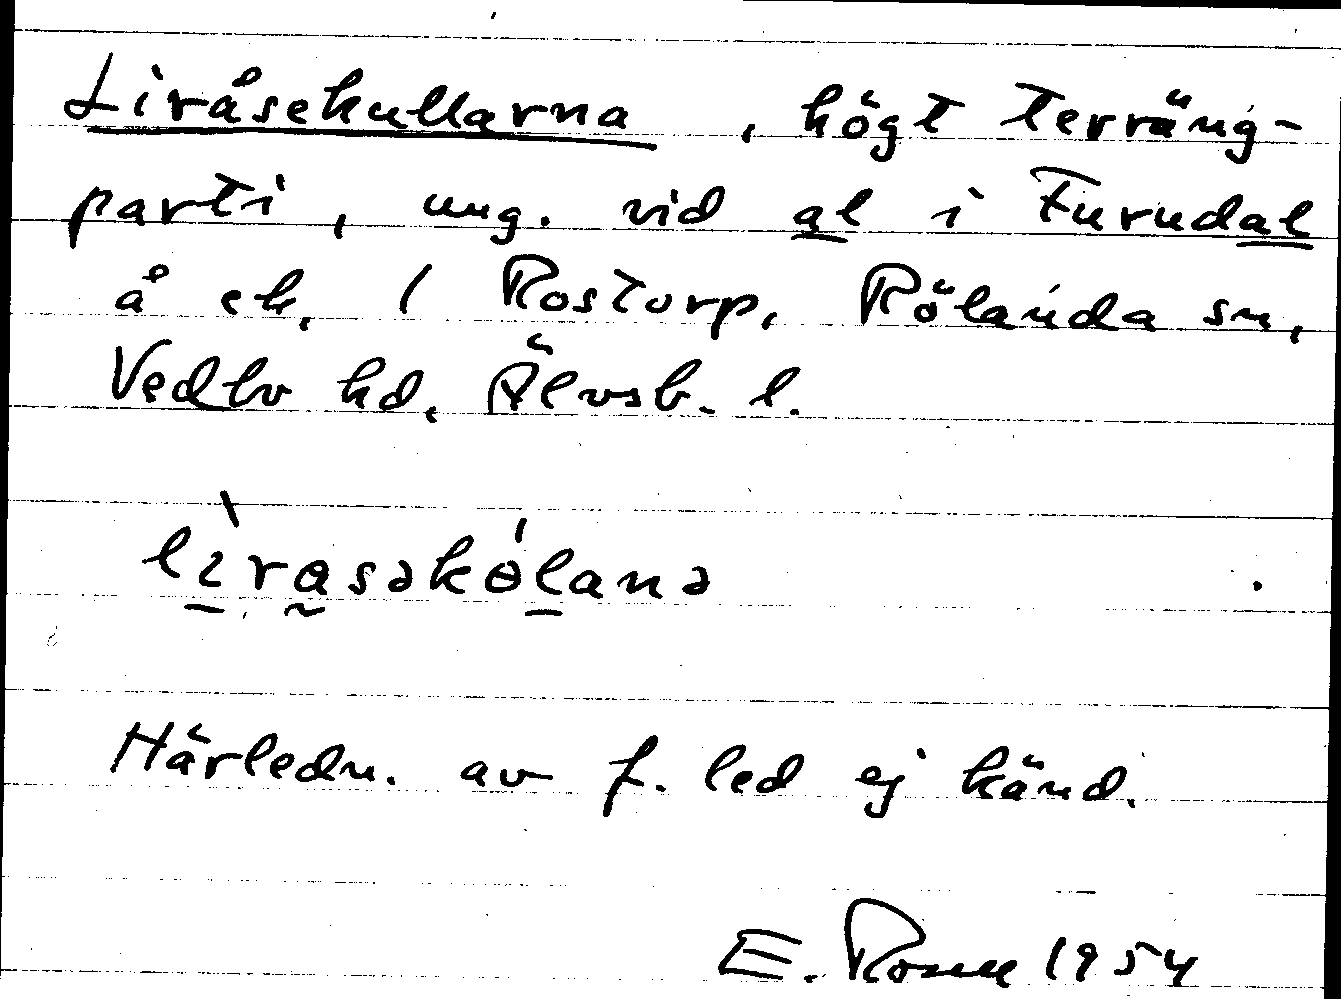 Liråsekullarna, högt terräng-
parti, ung. vid al i Furudal
å ek, / Rostorp, Rölanda sn,
Vedbo hd, Älvsb. l.
lìrasəkólanə
Härledn. av f. led ej känd.
E. Rosell 1954